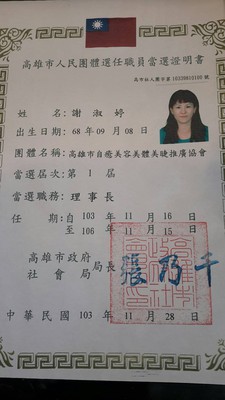 高雄市人民團體選任職員當選證明書
姓名 謝淑婷
出生日期 68年09月08日
團體名稱 高雄市自癒美容美體美睫推廣協會
當選屆次 第1屆
當選職務 理事長
任期 自 103年11月16日
至 106年11月15日
高雄市政府
社會局 局長 張乃千
中華民國 103年11月28日